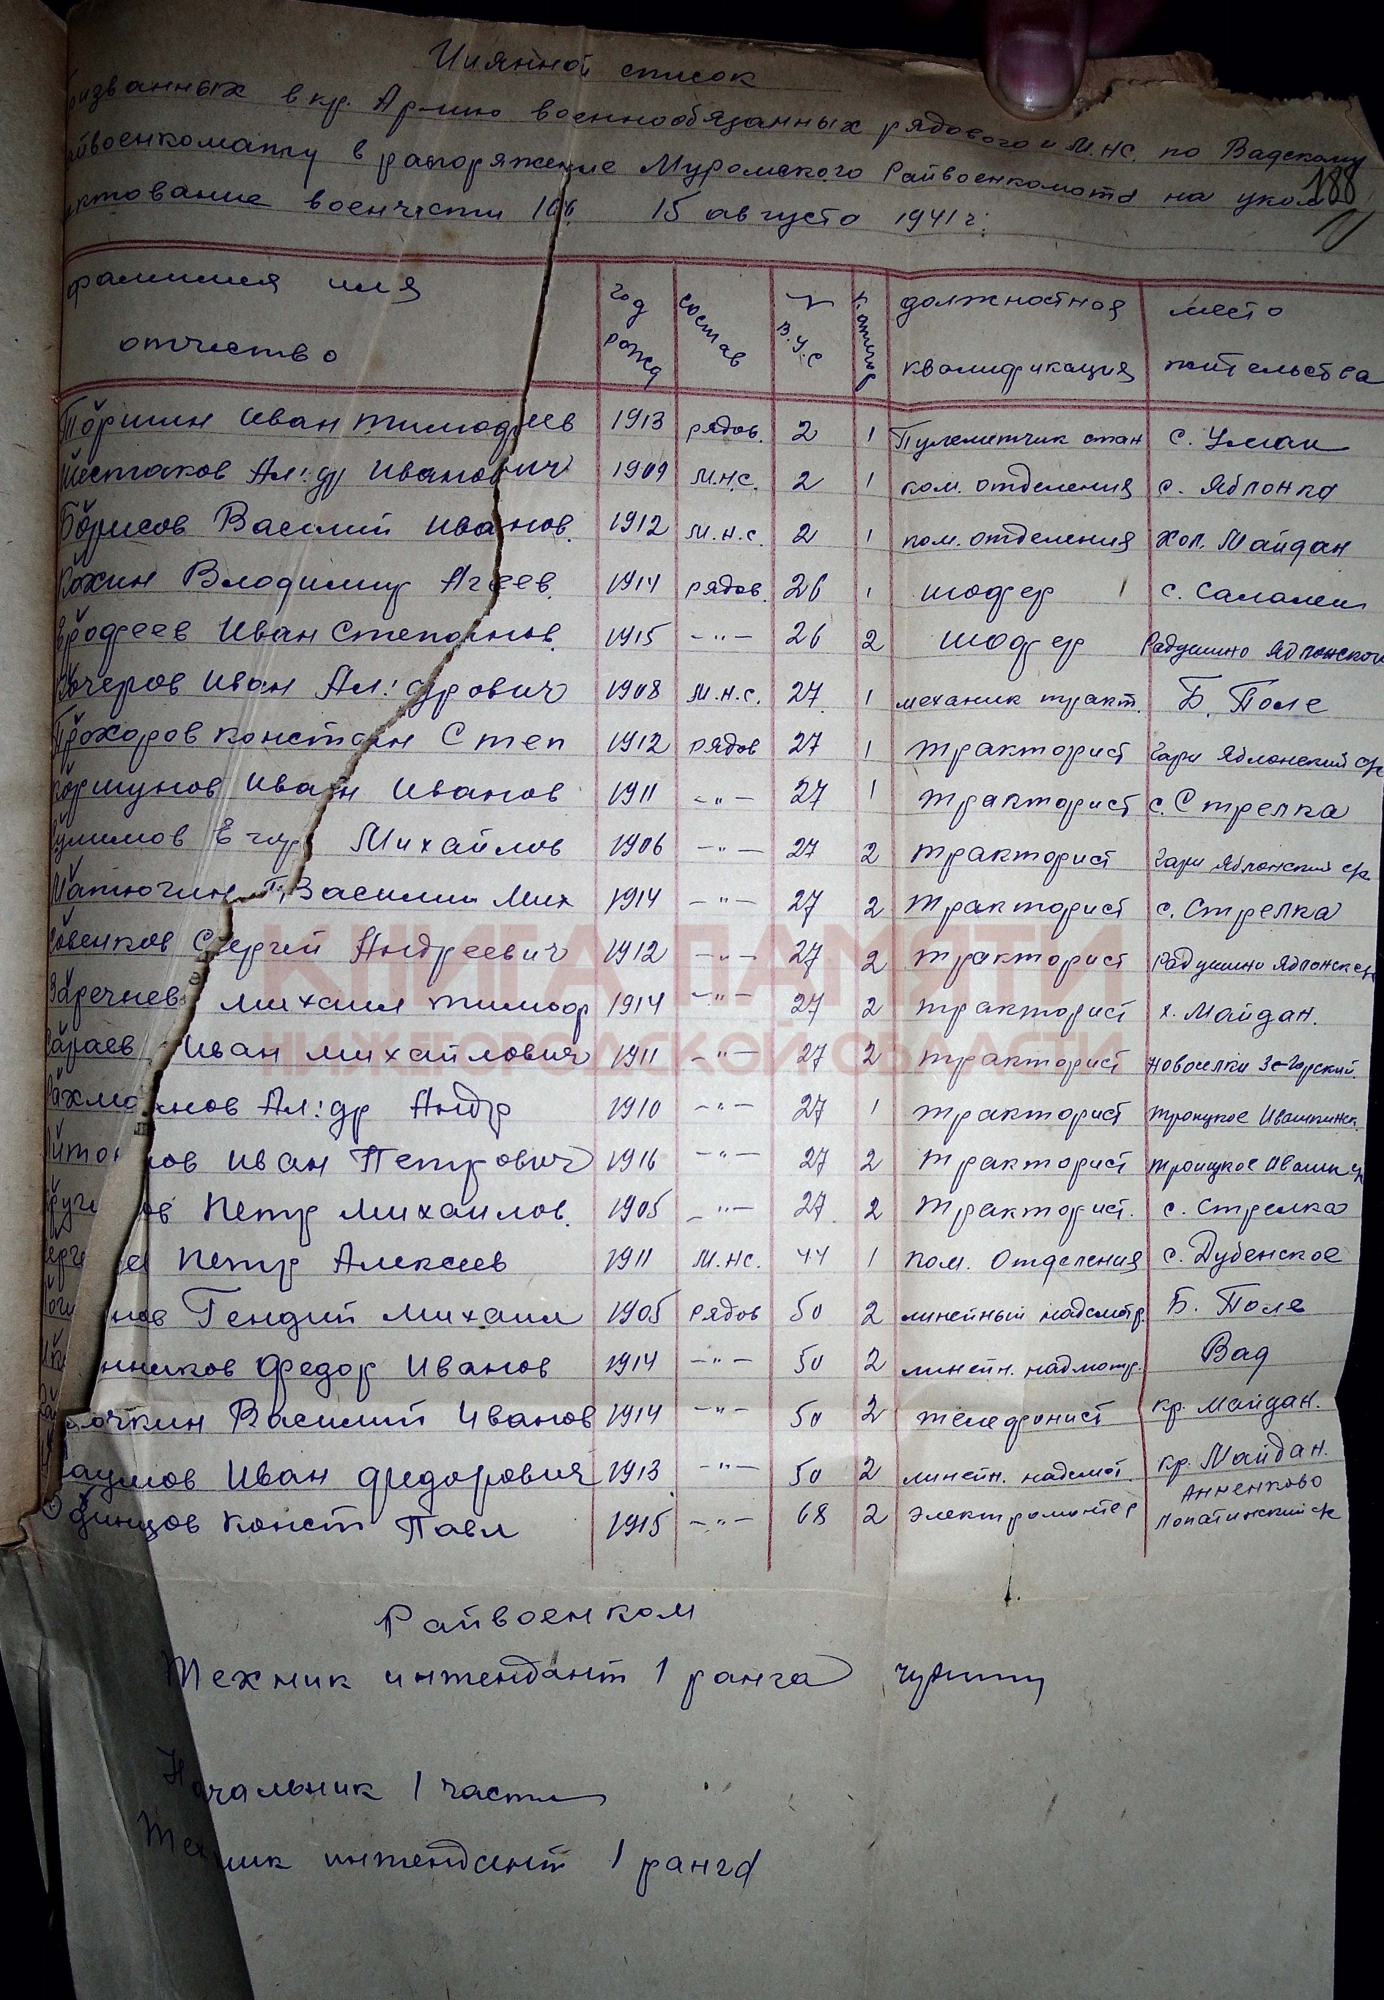 Имянной список
ризванных в кр. Армию военнообязанных рядового и М.НС. по Вадскому
айвоенкомату в распоряжение Муромского Райвоенкомата на уком
ктование военчасти 166 15 августа 1941 г.
188
фамилия имя отчество год рожд состав № В.У.С К. отштов должностная квалификация место жительства
Торшин Иван Тимофеев 1913 рядов. 2 1 Пулеметчик стан с. Умай
Шестаков Ал:др Иванович 1909 М.НС. 2 1 ком. отделения с. Яблонка
Борисов Василий Иванов. 1912 М.Н.С. 2 1 пом. отделения Хол. Майдан
Кохин Владимир Агеев. 1914 рядов. 26 1 шофер с. Салалеи
Ерофеев Иван Степанов. 1915 -"- 26 2 шофер Радушино Яблонского
Кочеров Иван Ал:дрович 1908 М.Н.С. 27 1 механик тракт. Б. Поле
Прохоров Констан Степ 1912 рядов 27 1 тракторист Гари Яблонский с/с
Коршунов Иван Иванов 1911 -"- 27 1 тракторист с. Стрелка
Егор Михайлов 1906 -"- 27 2 тракторист Гари Яблонский с/с
Матюгин Василий Мих 1914 -"- 27 2 тракторист с. Стрелка
овенков Сергей Андреевич 1912 -"- 27 2 тракторист Радушино Яблонск с/с
Заречнев Михаил Тимоф 1914 -"- 27 2 тракторист х. Майдан.
Сараев Иван Михайлович 1911 -"- 27 2 тракторист Новоселки Зе-Горский.
Рахманов Ал:др Андр 1910 -"- 27 1 тракторист Троицкое Ивашкинск.
нов Иван Петрович 1916 -"- 27 2 тракторист Троицкое Ивашк с/с
ов Петр Михайлов. 1905 -"- 27 2 тракторист. с. Стрелка
Сергеев Петр Алексеев 1911 М.НС. 44 1 пом. Отделения с. Дубенское
нов Гендий Михаил 1905 рядов 50 2 линейный надсмотр. Б. Поле
нников Федор Иванов 1914 -"- 50 2 линейн. надмотр. Вад
очкин Василий Иванов 1914 -"- 50 2 телефонист кр. Майдан.
аумов Иван Федорович 1913 -"- 50 2 линейн. надсмот. кр. Майдан.
Одинцов Конст Павл 1915 -"- 68 2 электромонтер Анненково Лопатинский с/с
Райвоенком
Техник интендант 1 ранга
Начальник 1 части
Техник интендант 1 ранга
КНИГА ПАМЯТИ
НИЖЕГОРОДСКОЙ ОБЛАСТИ